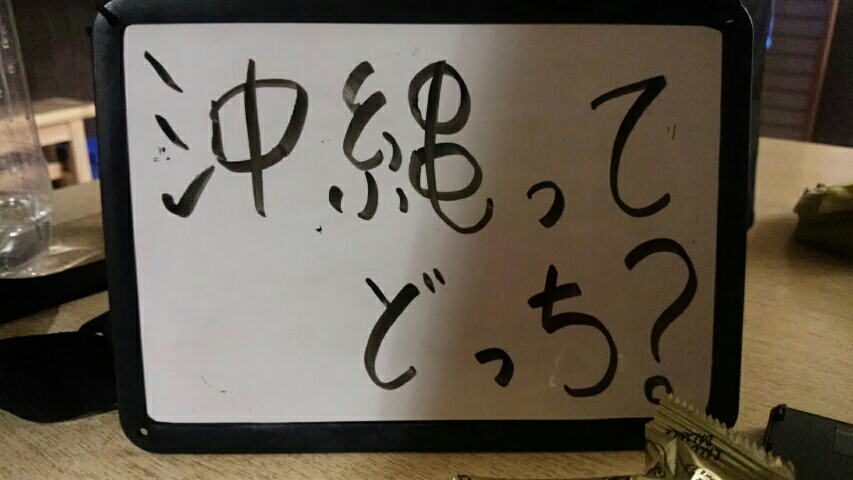 沖縄って
どっち?